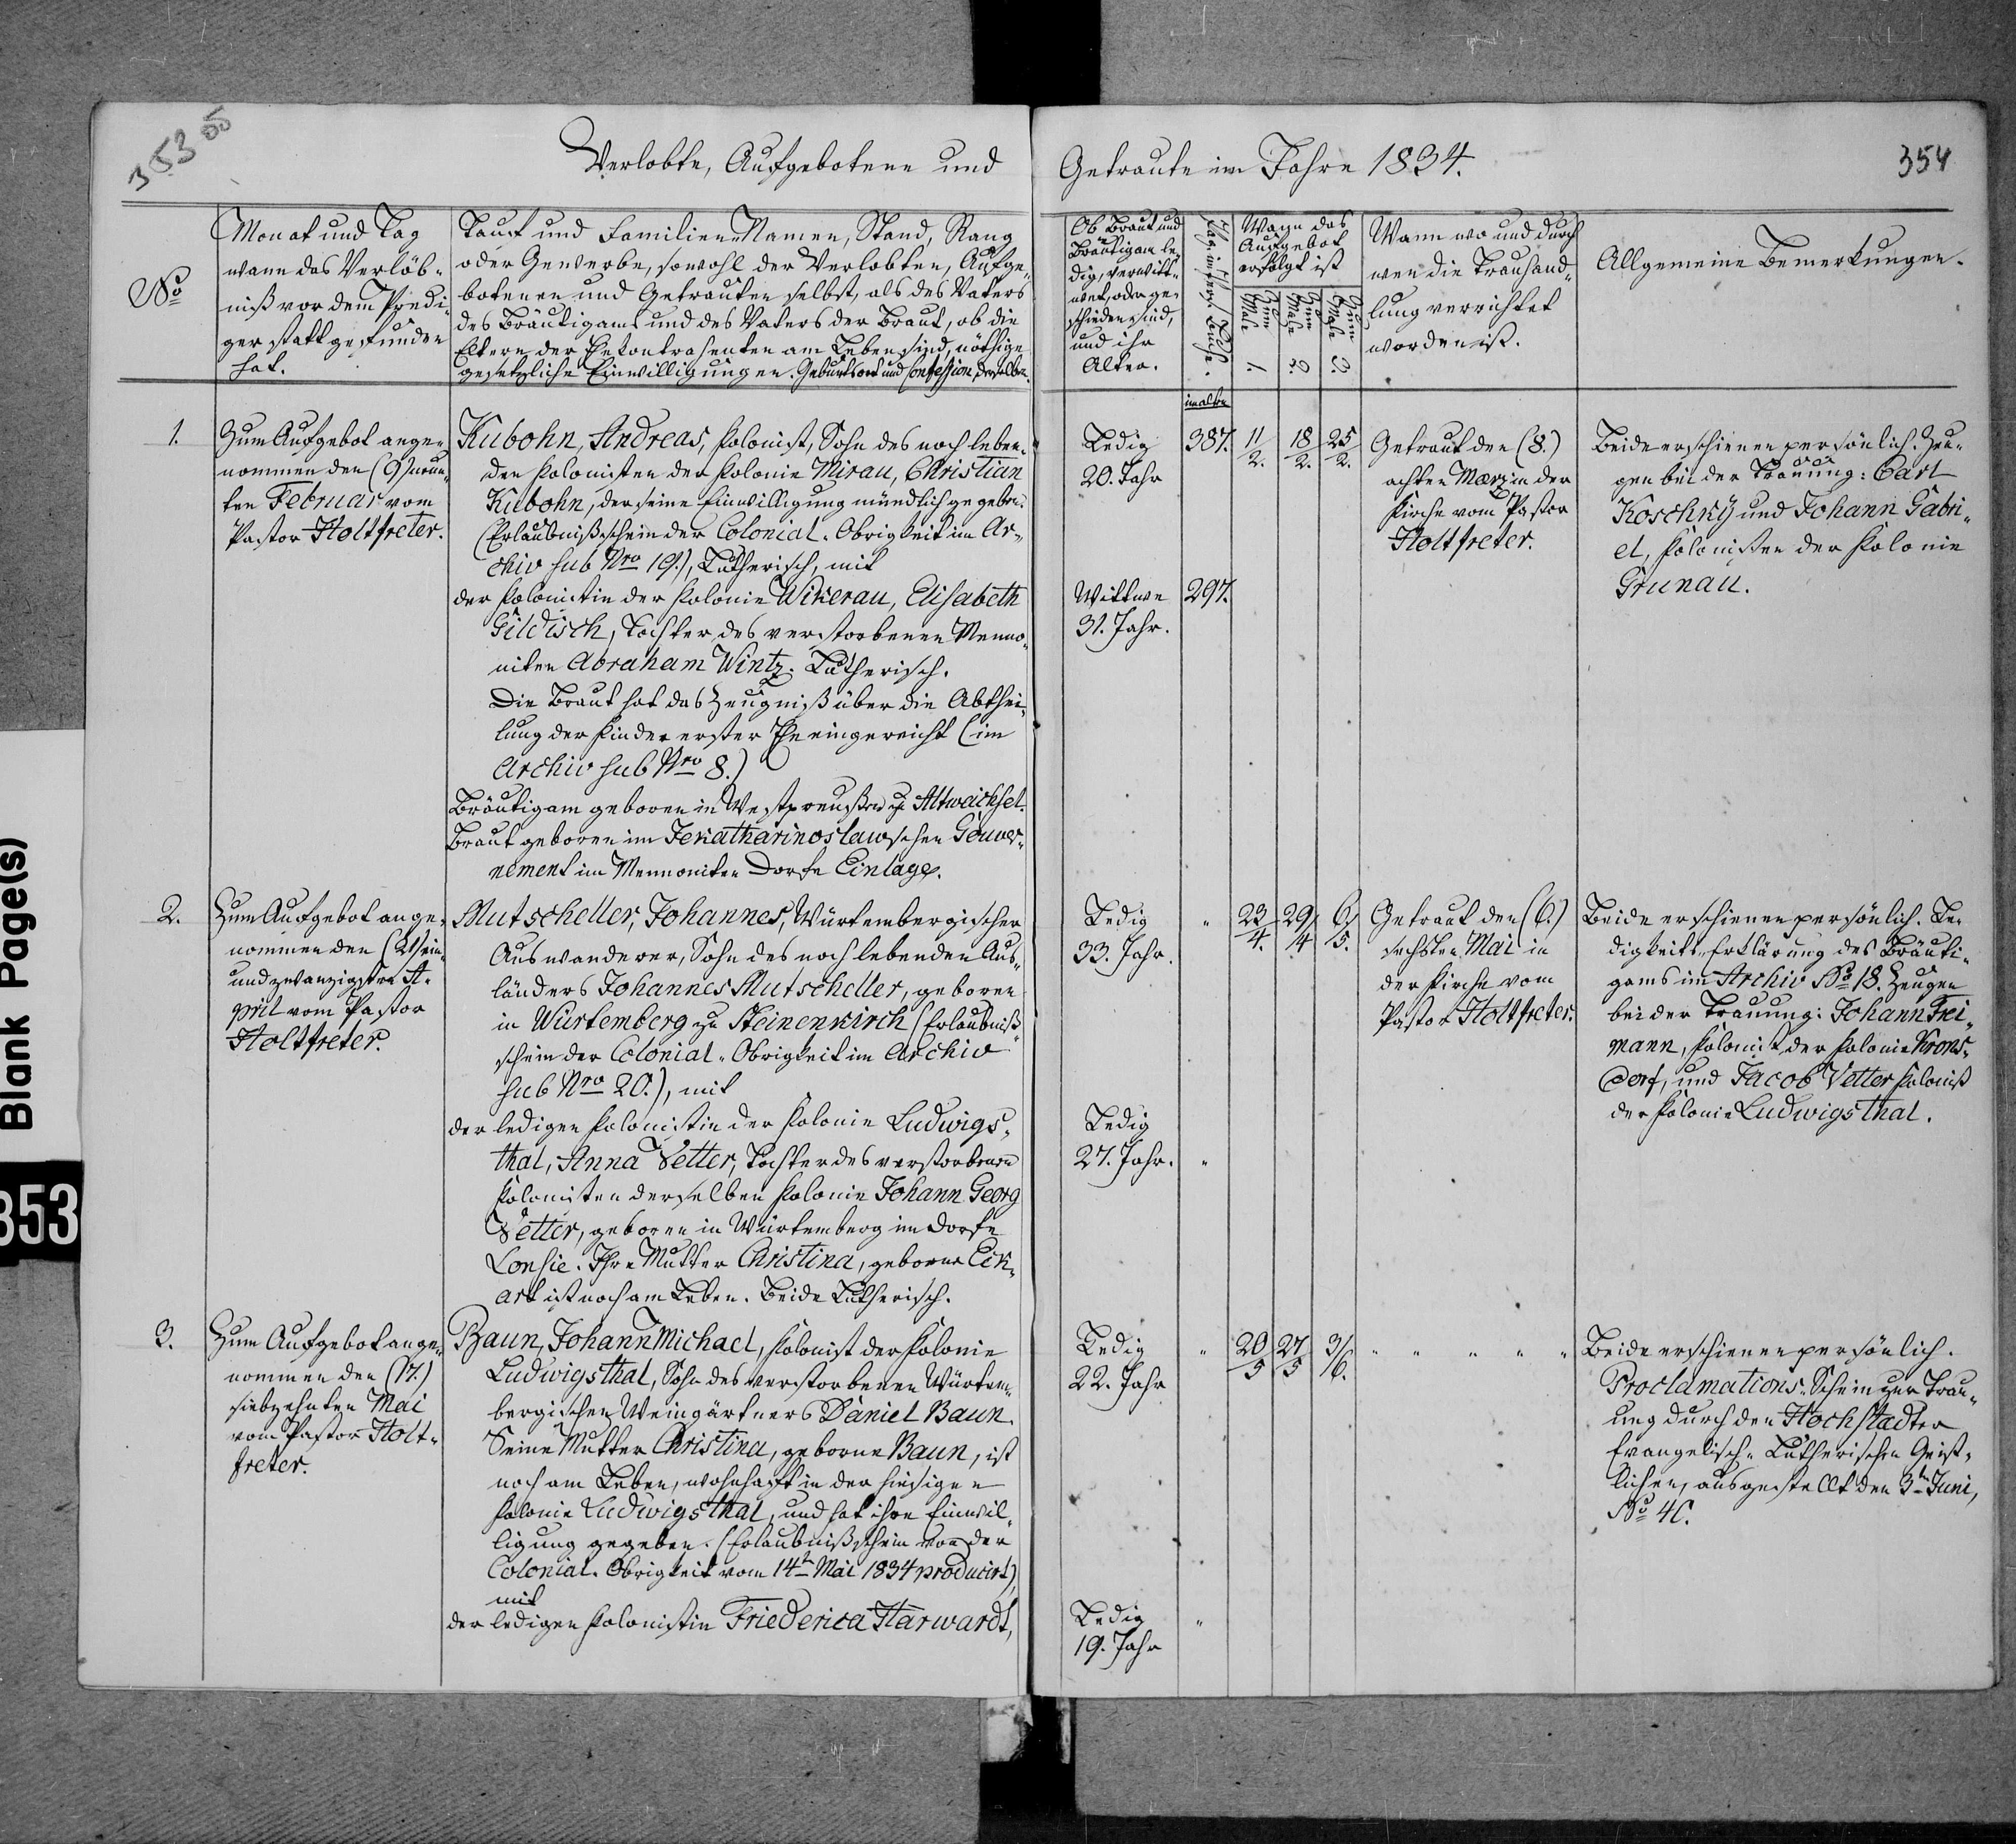 353 os
Verlobte, Aufgebotene und
Getraute im Jahre 1834.
354
No
Monat und Tag
wann das Verlöb-
niß vor dem Predi-
ger statt gefunden
hat.
Tauf und Familien Namen, Stand, Rang
oder Gewerbe, sowohl der Verlobten, Aufge-
botenen und Getrauten selbst, als des Vaters
des Bräutigams und des Vaters der Braut, ob die
Eltern der Ehekontrahenten am Leben sind, nöthige
gesetzliche Einwilligungen. Geburtsort und Confession derselben.
Ob Braut und
Bräutigam le-
dig, verwitt-
wet, oder ge-
schieden sind,
und ihr
Alter.
Wann das
Aufgebot
erfolgt ist
Zum Male 1.
Zum Male 2.
Zum Male 3.
Wann wo und durch
wen die Trauhand-
lung verrichtet
worden ist.
Allgemeine Bemerkungen.
1.
Zum Aufgebot ange-
nommen den (9) neun-
ten Februar vom
Pastor Holtfreter.
Kubohn, Andreas, Kolonist, Sohn des noch leben-
den Kolonisten der Kolonie Mirau, Christian
Kubohn, der seine Einwilligung mündlich gegeben.
(Erlaubnißschein der Colonial-Obrigkeit im Ar-
chiv sub Nro 19.), Lutherisch, mit
der Kolonistin der Kolonie Wikerau, Elisabeth
Gildisch, Tochter des verstorbenen Menno-
niten Abraham Wintz. Lutherisch.
Die Braut hat das Zeugniß über die Abthei-
lung der Kinder erster Ehe eingereicht (im
Archiv sub Nro 8.)
Bräutigam geboren in Westpreußen zu Altweichsel.
Braut geboren im Jekatharinoslawschen Gouver-
nement im Mennoniten Dorfe Einlage.
Ledig
20. Jahr
im alten
387.
11/2.
18/2.
25/2.
Getraut den (8.)
achten Maerz in der
Kirche vom Pastor
Holtfreter.
Beide erschienen persönlich. Zeu-
gen bei der Trauung: Carl
Koschky und Johann Gabri-
el, Kolonisten der Kolonie
Grunau.
Wittwe
31. Jahr.
297.
2.
Zum Aufgebot ange-
nommen den (21) ein-
undzwanzigsten A-
pril vom Pastor
Holtfreter.
Mutscheller, Johannes, Würtembergischer
Auswanderer, Sohn des noch lebenden Aus-
länders Johannes Mutscheller, geboren
in Würtemberg zu Steinenkirch (Erlaubniß-
schein der Colonial-Obrigkeit im Archiv
sub Nro 20.), mit
der ledigen Kolonistin der Kolonie Ludwigs-
thal, Anna Vetter, Tochter des verstorbenen
Kolonisten derselben Kolonie Johann Georg
Vetter, geboren in Würtemberg im Dorfe
Lonsie. Ihre Mutter Christina, geborne Eik-
art ist noch am Leben. Beide Lutherisch.
Ledig
33. Jahr.
"
23/4.
29/4
6/5.
Getraut den (6.)
sechsten Mai in
der Kirche vom
Pastor Holtfreter.
Beide erschienen persönlich. Le-
digkeits-Erklärung des Bräuti-
gams im Archiv No 18. Zeugen
bei der Trauung: Johann Frei-
mann, Kolonist der Kolonie Krons-
dorf, und Jacob Vetter Kolonist
der Kolonie Ludwigsthal.
Ledig
27. Jahr.
"
3.
Zum Aufgebot ange-
nommen den (17.)
siebzehnten Mai
vom Pastor Holt-
freter.
Baun, Johann Michael, Kolonist der Kolonie
Ludwigsthal, Sohn des verstorbenen Würtem-
bergischen Weingärtners Daniel Baun.
Seine Mutter Christina, geborne Baun, ist
noch am Leben, wohnhaft in der hiesigen
Kolonie Ludwigsthal, und hat ihre Einwil-
ligung gegeben. (Erlaubnißschein von der
Colonial-Obrigkeit vom 14ten Mai 1834 producirt),
mit
der ledigen Kolonistin Friederica Harwardt,
Ledig
22. Jahr
"
20/5
27/5
3/6.
" " " " "
Beide erschienen persönlich.
Proclamations-Schein zur Trau-
ung durch den Hochstädter
Evangelisch-Lutherischen Geist-
lichen, ausgestellt den 3ten Juni,
Ledig
19. Jahr
"
Blank Page(s)
353